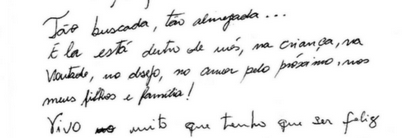 Tão buscada, tão almejada...
Ela está dentro de nós, na criança, na
vontade, no desejo, no amor pelo próximo, nos
meus filhos e família!
Vivo muito que tenho que ser feliz